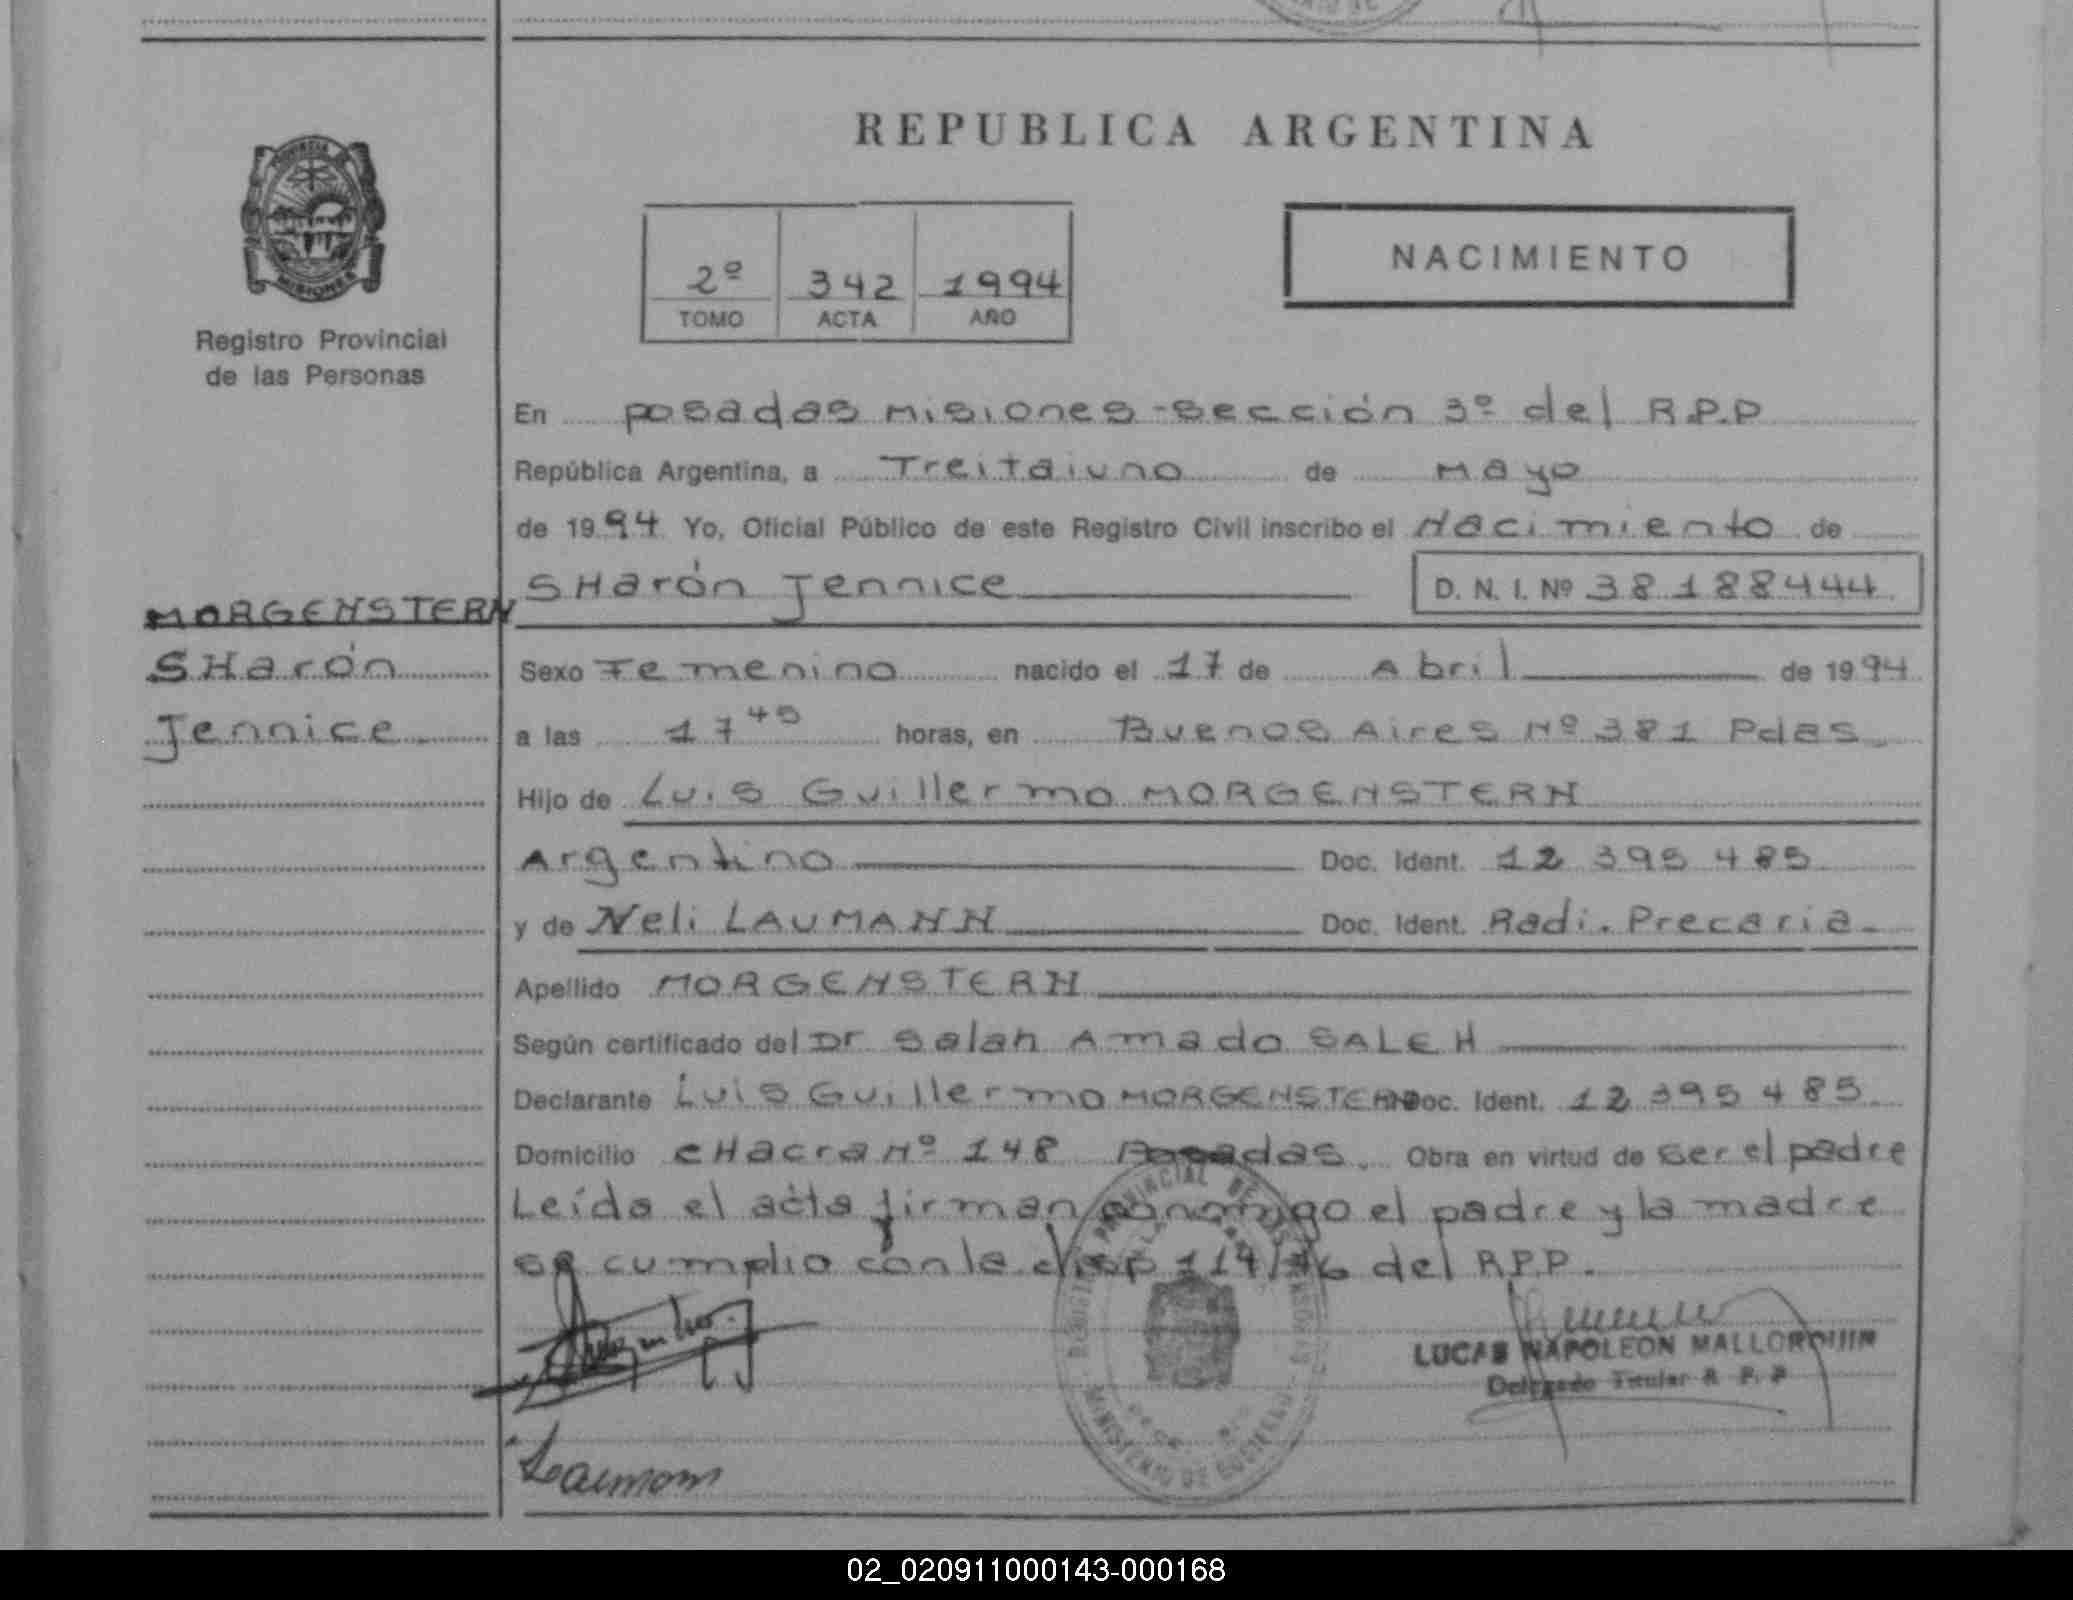 REPUBLICA ARGENTINA
PROVINCIA DE
MISIONES
Registro Provincial
de las Personas
2º 342 1994
TOMO ACTA AÑO
NACIMIENTO
En posadas Misiones - sección 3º del R.P.P
República Argentina, a Treitaiuno de Mayo
de 1994 Yo, Oficial Público de este Registro Civil inscribo el Nacimiento de
SHarón Jennice D. N. I. Nº 38 188444
MORGENSTERN
SHarón
Jennice
Sexo Femenino nacido el 17 de Abril de 1994
a las 17 45 horas, en Buenos Aires Nº 381 Pdas.
Hijo de Luis Guillermo MORGENSTERN
Argentino Doc. Ident. 12 395 485
y de Neli LAUMANN Doc. Ident. Radi. Precaria.
Apellido MORGENSTERN
Según certificado del Dr Salah Amado SALEH
Declarante Luis Guillermo MORGENSTERN Doc. Ident. 12 395 485.
Domicilio cHacra Nº 148 Posadas. Obra en virtud de ser el padre
Leída el acta firman conmigo el padre y la madre
se cumplio con la disp 114/76 del R.P.P.
LUCAS NAPOLEON MALLORQUIN
Delegado Titular R. P. P
REGISTRO PROVINCIAL DE LAS PERSONAS
MINISTERIO DE GOBIERNO
Laumann
02_020911000143-000168